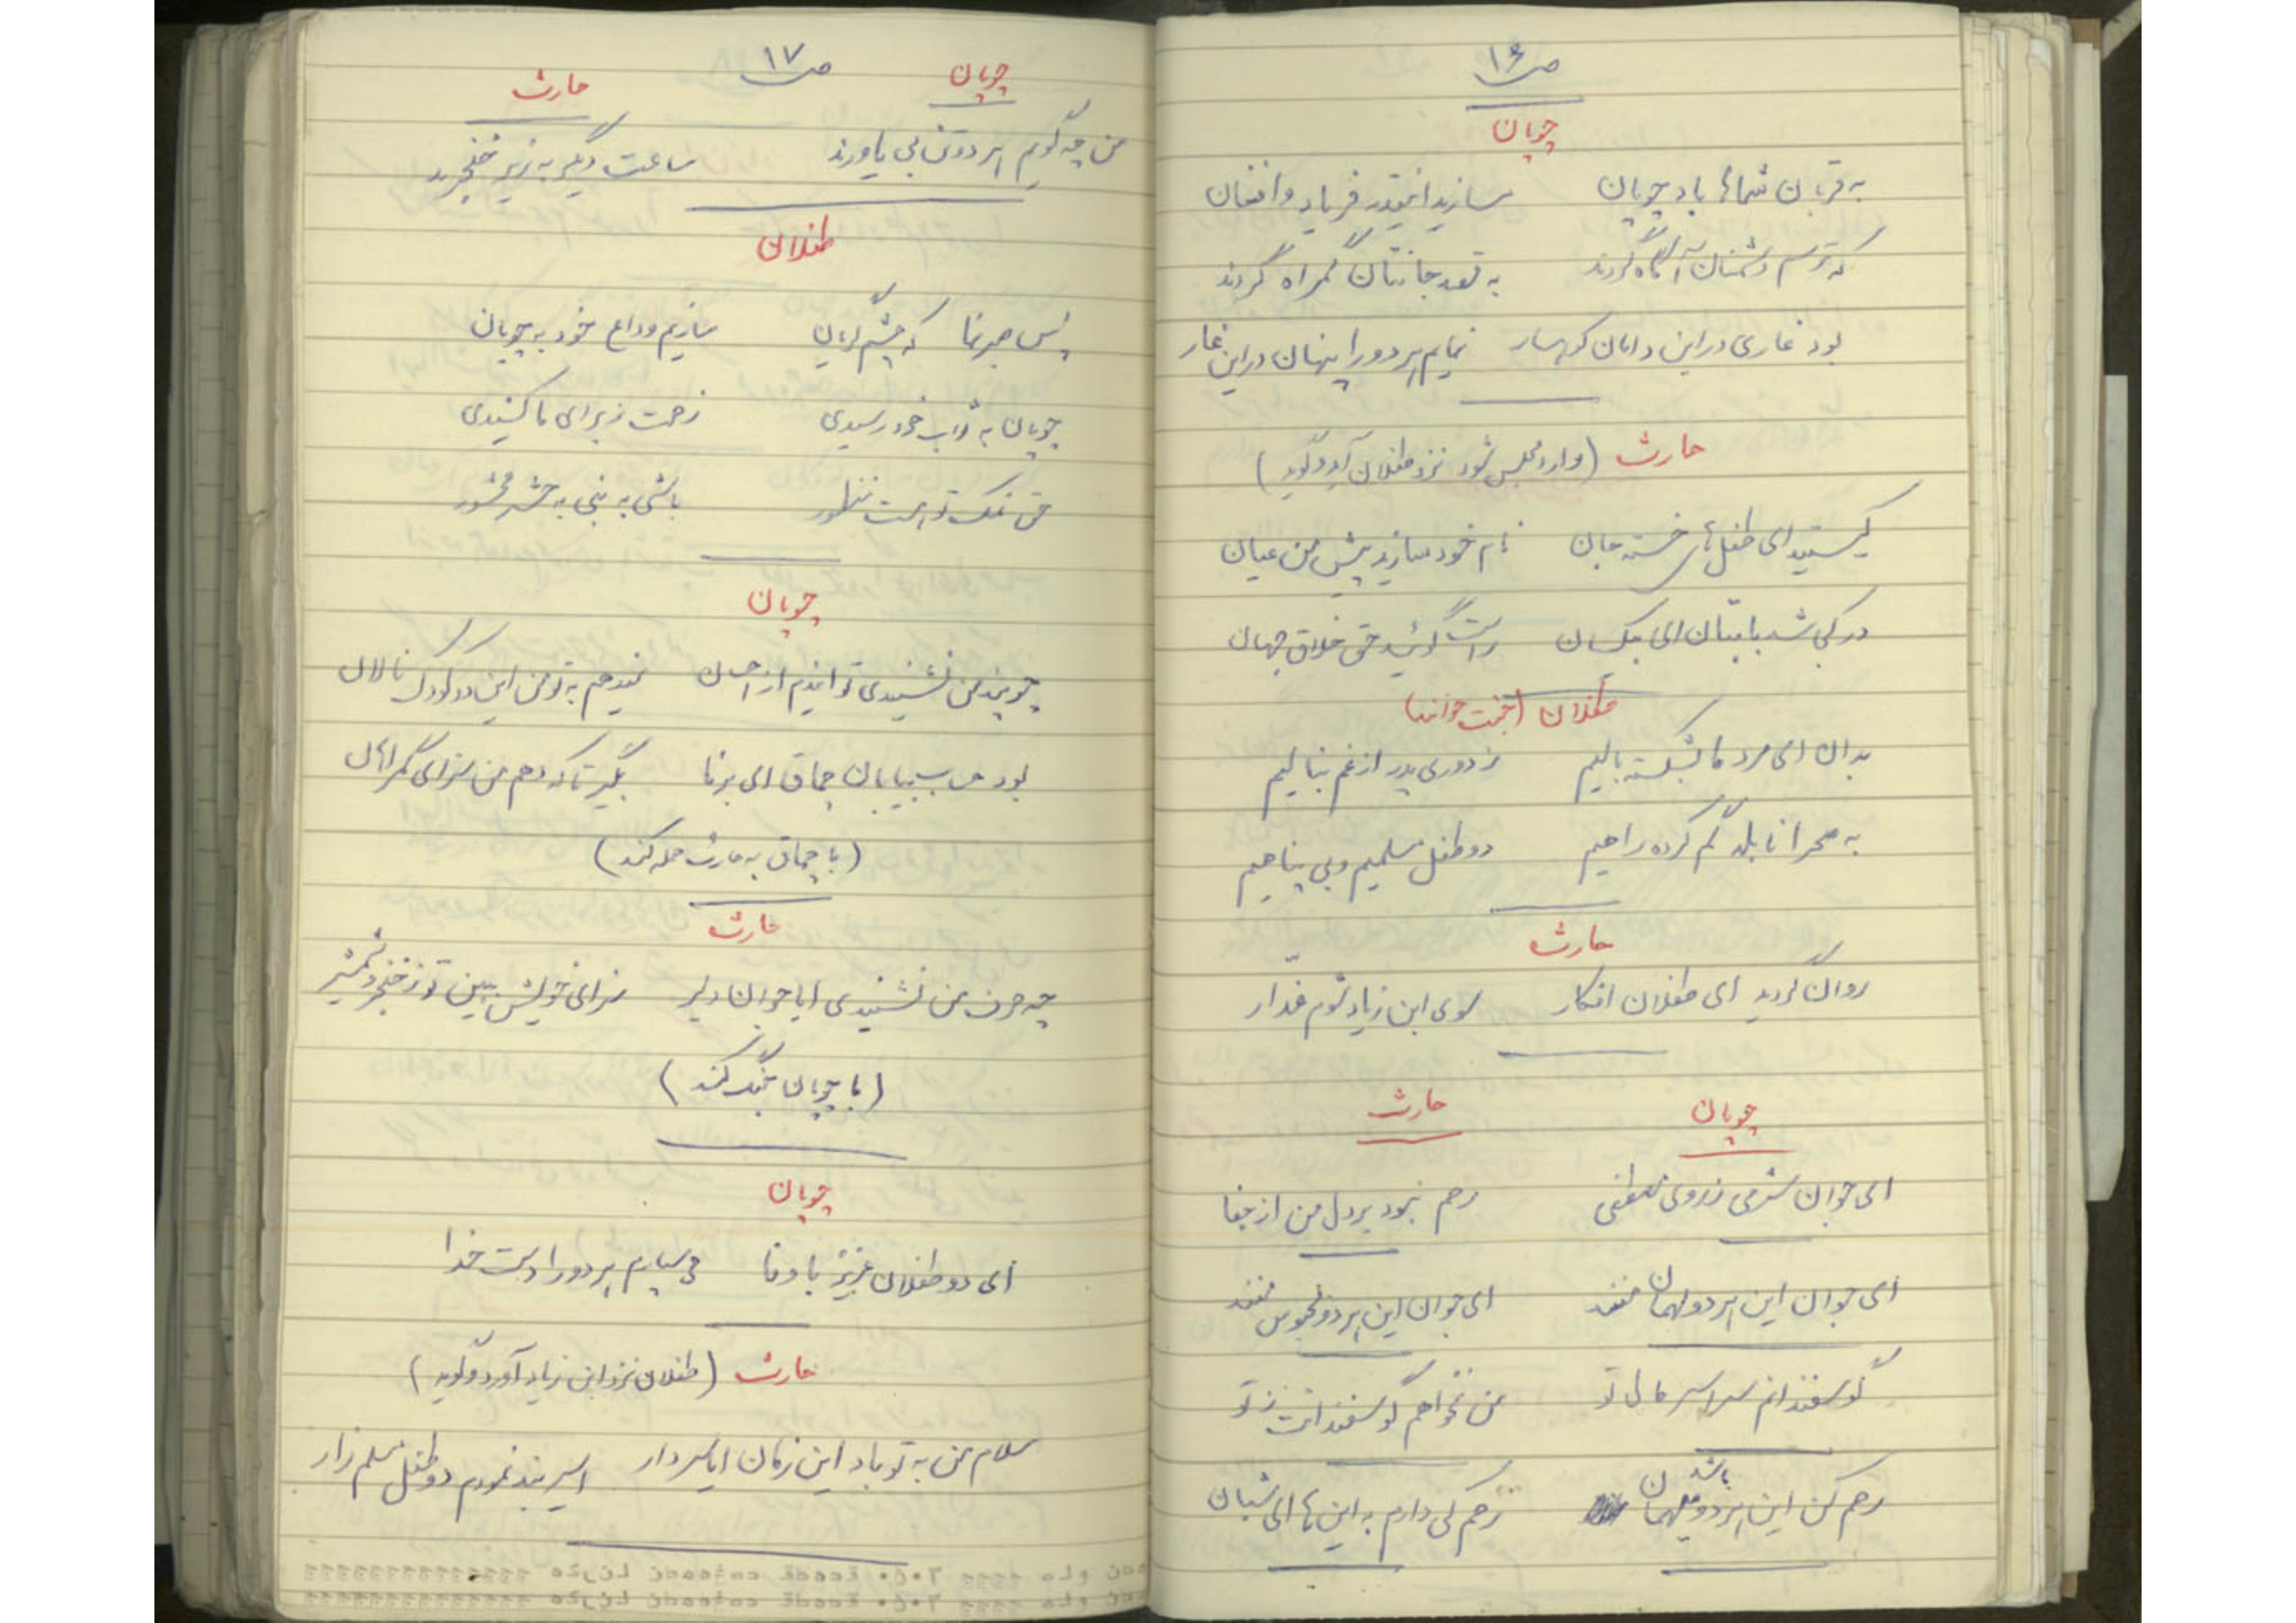 ص ۱۶
چوپان
به قربان شماها باد چوپان مسازید اینقدر فریاد و افغان
که ترسم دشمنان آگاه گردند به قصد جانتان گمراه گردند
بود غاری در این دامان کوهسار نمایم هر دو را پنهان در این غار
حارث (وارد مجلس شود نزد طفلان آید و گوید)
کیستید ای طفل‌های خسته جان نام خود سازید پیش من عیان
در کجا شد بابتان ای بیکسان راست گوئید حق خلاق جهان
طفلان (جفت خوانند)
بدان ای مرد ما شکسته بالیم ز دوری پدر از غم بنالیم
به صحرا نابلد گم کرده راهیم دو طفل مسلمیم و بی پناهیم
حارث
روان گردید ای طفلان افکار سوی ابن زیاد شوم غدّار
چوپان حارث
ای جوان شرمی ز روی مصطفی رحم نبود بر دل من از جفا
ای جوان این هر دو مهمان منند ای جوان این هر دو محبوس منند
گوسفندانم سراسر مال تو من نخواهم گوسفندانت ز تو
رحم کن این هر دو مهمان باشدن رحم کی دارم به این ها ای شبان
ص ۱۷
چوپان حارث
من چه گویم هر دوتن بی یاورند ساعت دیگر به زیر خنجرند
طفلان
پس صبر نما که چشم گریان سازیم وداع خود به چوپان
چوپان به ثواب خود رسیدی زحمت ز برای ما کشیدی
حق نمک تو هست منظور باشی به نبی به حشر محشور
چوپان
چو پند من نشنیدی تو ایندم از احسان نمیدهم به تو من این دو کودک نالان
بود حرب بیابان چماق ای برنا بگیر تا که دهم من سزای گمراهان
(با چماق به حارث حمله کند)
حارث
چه حرف من نشنیدی ایا جوان دلیر سزای خویش ببین تو ز خنجر و شمشیر
(با چوپان جنگ کند)
چوپان
ای دو طفلان عزیز با وفا می سپارم هر دو را دست خدا
حارث (طفلان نزد ابن زیاد آورد و گوید)
سلام من به تو باد این زمان ایا سردار اسیر بند نمودم دو طفل مسلم زار